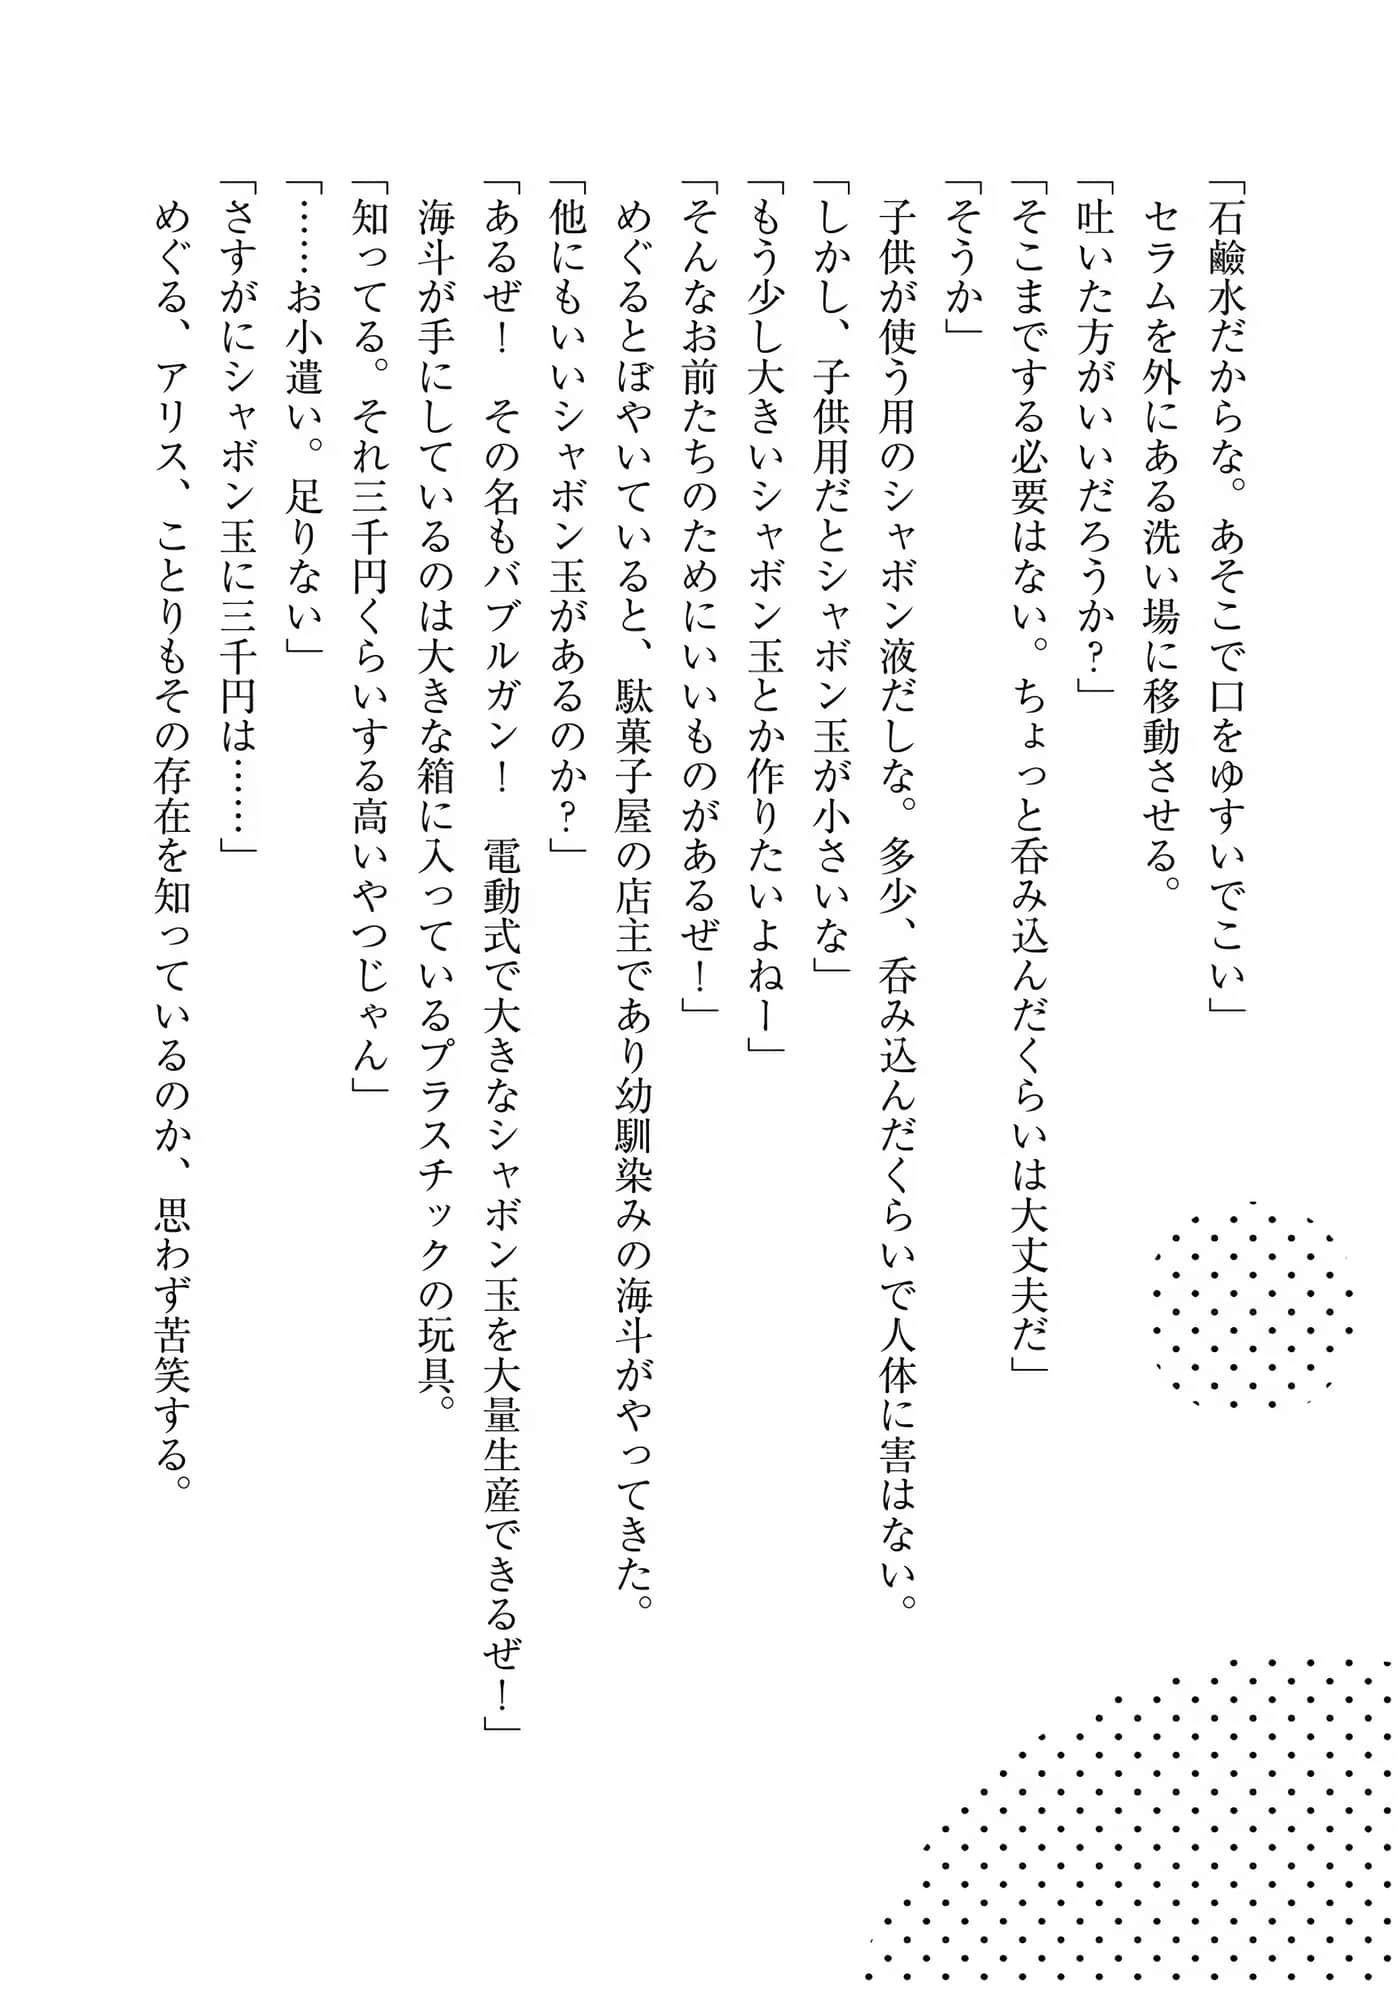 「石鹼水だからな。あそこで口をゆすいでこい」
　セラムを外にある洗い場に移動させる。
「吐いた方がいいだろうか？」
「そこまでする必要はない。ちょっと呑み込んだくらいは大丈夫だ」
「そうか」
　子供が使う用のシャボン液だしな。多少、呑み込んだくらいで人体に害はない。
「しかし、子供用だとシャボン玉が小さいな」
「もう少し大きいシャボン玉とか作りたいよねー」
「そんなお前たちのためにいいものがあるぜ！」
　めぐるとぼやいていると、駄菓子屋の店主であり幼馴染みの海斗がやってきた。
「他にもいいシャボン玉があるのか？」
「あるぜ！　その名もバブルガン！　電動式で大きなシャボン玉を大量生産できるぜ！」
　海斗が手にしているのは大きな箱に入っているプラスチックの玩具。
「知ってる。それ三千円くらいする高いやつじゃん」
「……お小遣い。足りない」
「さすがにシャボン玉に三千円は……」
　めぐる、アリス、ことりもその存在を知っているのか、思わず苦笑する。